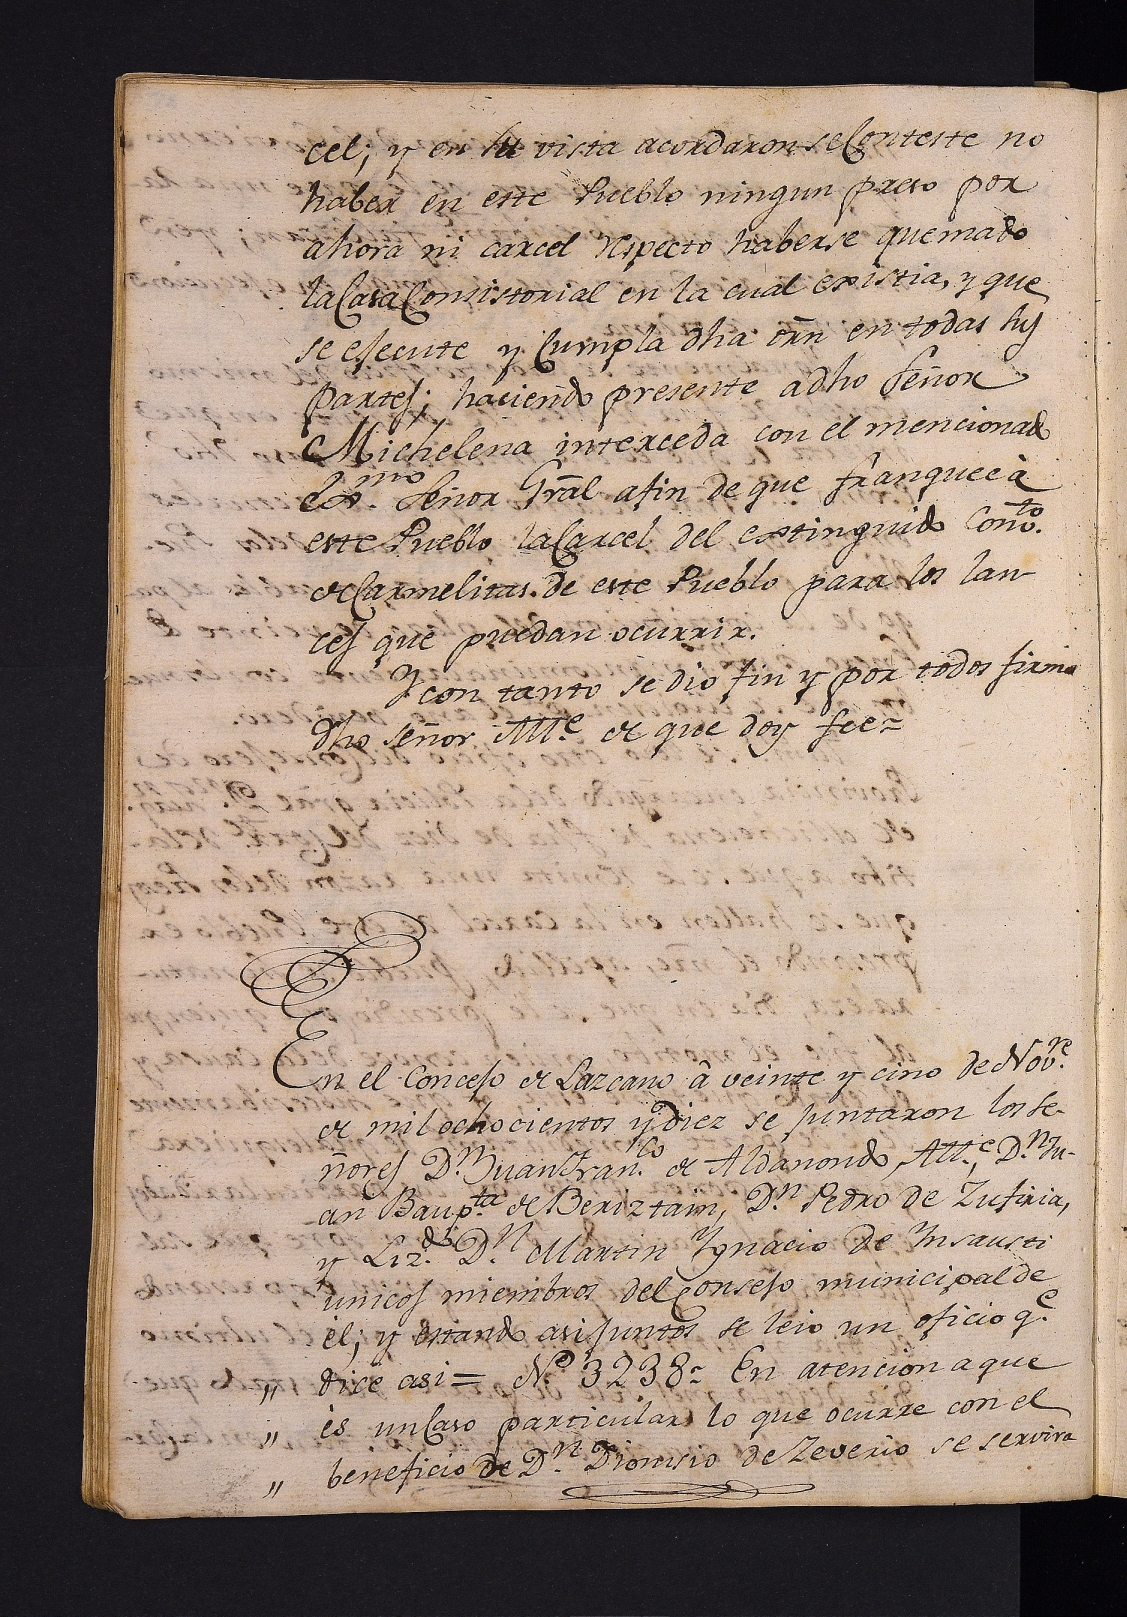 cel; y en su vista acordaron se Conteste no
haber en este Pueblo ningun preso por
ahora ni carcel respecto haberse quemado
la Casa Consistorial en la cual existia, y que
se ejecute y Cumpla dha orn en todas sus
partes; haciendo presente a dho Señor
Michelena interceda con el mencionado
Exmo. Señor Grãl afin de que franqueé à
este Pueblo la Carcel del extinguido Conto.
de Carmelitas de este Pueblo para los lan-
ces que puedan ocurrir.
Y con tanto se dio fin y por todos firma
dho Señor Alle de que doy fee~
En el Concejo de Lazcano â veinte y cinco de Novre.
de mil ochocientos y diez se juntaron los se-
ñores Dn. Juan Franco. de Aldanondo Alle., Dn. Ju-
an Baupta. de Beriztain, Dn. Pedro de Zufiria,
y Lizdo. Dn. Martin Ygnacio de Ynsausti
unicos miembros del Consejo municipal de
él; y estando asi juntos se leio un oficio qe.
„ dice asi = No. 3238~ En atencion a que
„ es un Caso particular lo que ocurre con el
„ beneficio de Dn. Dionisio de Zeverio se servira